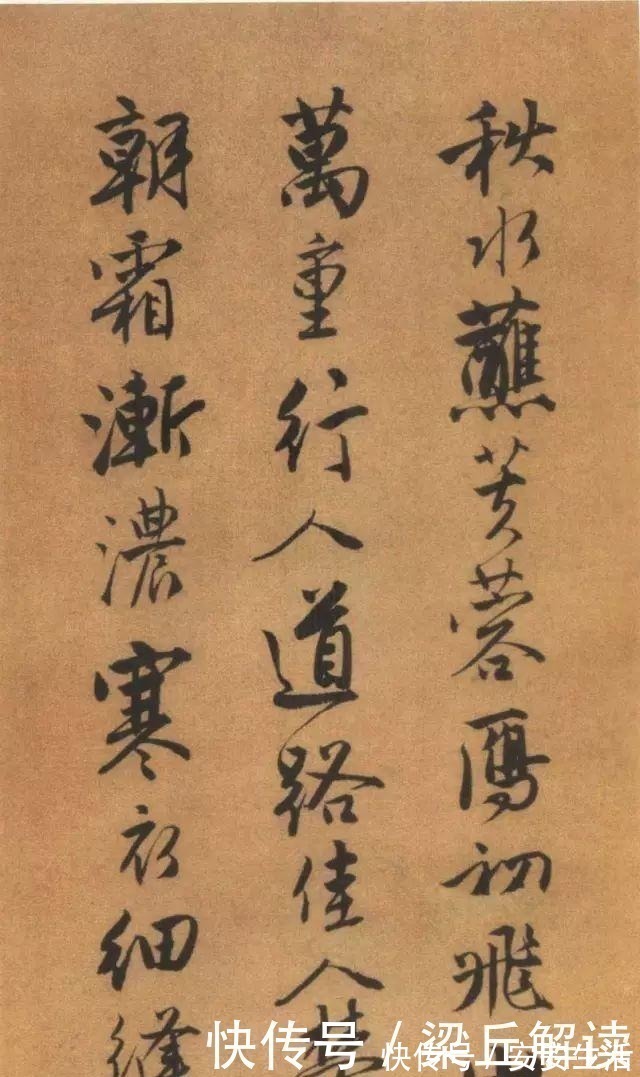 秋水蘸芙蓉鴈初飛
萬重行人道路佳人
朝霜漸濃寒衣細縫
快传号 / 梁丘解读
快传号 /